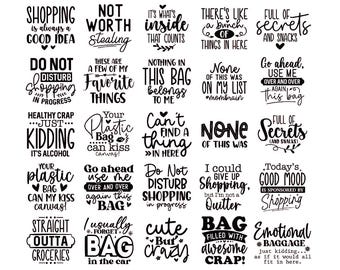 SHOPPING
is always a
GOOD IDEA
NOT
WORTH
Stealing
IT'S
what's
inside
that
COUNTS
THERE'S LIKE
a Bunch
OF
THINGS IN HERE
FULL of
SECRETS
AND SNACKS
DO NOT
DISTURB
Shopping
IN PROGRESS
THESE ARE
A FEW OF MY
Favorite
THINGS
NOTHING IN
THIS BAG
belongs
TO ME
None
OF THIS WAS
ON MY LIST
#momhain
Go ahead,
USE ME
OVER AND OVER
AGAIN
this bag
HEALTHY CRAP
JUST
KIDDING
IT'S ALCOHOL
Your
Plastic
Bag
can kiss
my
canvas!
Can't
FIND A
thing
IN HERE
NONE
OF THIS WAS
FULL OF
Secrets
(AND SNACKS)
YOUR
plastic
BAG
CAN MY KISS
CANVAS!
Go ahead
use me
OVER AND OVER
again this
BAG
Do Not
DISTURB
SHOPPING
in progress
I could
GIVE UP
SHOPPING,
but I'm not a
Quitter
Today's,
GOOD MOOD
IS SPONSORED BY
SHOPPING
STRAIGHT
OUTTA
GROCERIES
I usually
FORGET
BAG
in the car
cute
But
crazy
BAG
FILLED WITH
awesome
CRAP!
Emotional
BAGGAGE
just kidding,
as if it would all
fit in here.